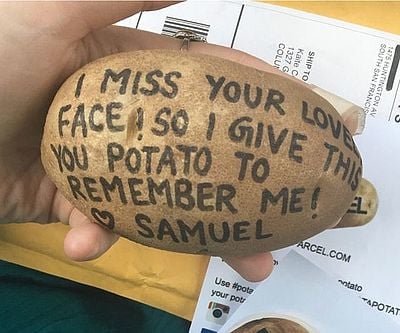 I MISS YOUR LOVELY
FACE! SO I GIVE THIS
YOU POTATO TO
REMEMBER ME!
♡ SAMUEL
SHIP TO
1475 HUNTINGTON AV
SOUTH SAN FRANCISC
Kate C
1327 G
COLU
EL
ARCEL.COM
TAPOTAT
Use #pota
your pota
potato